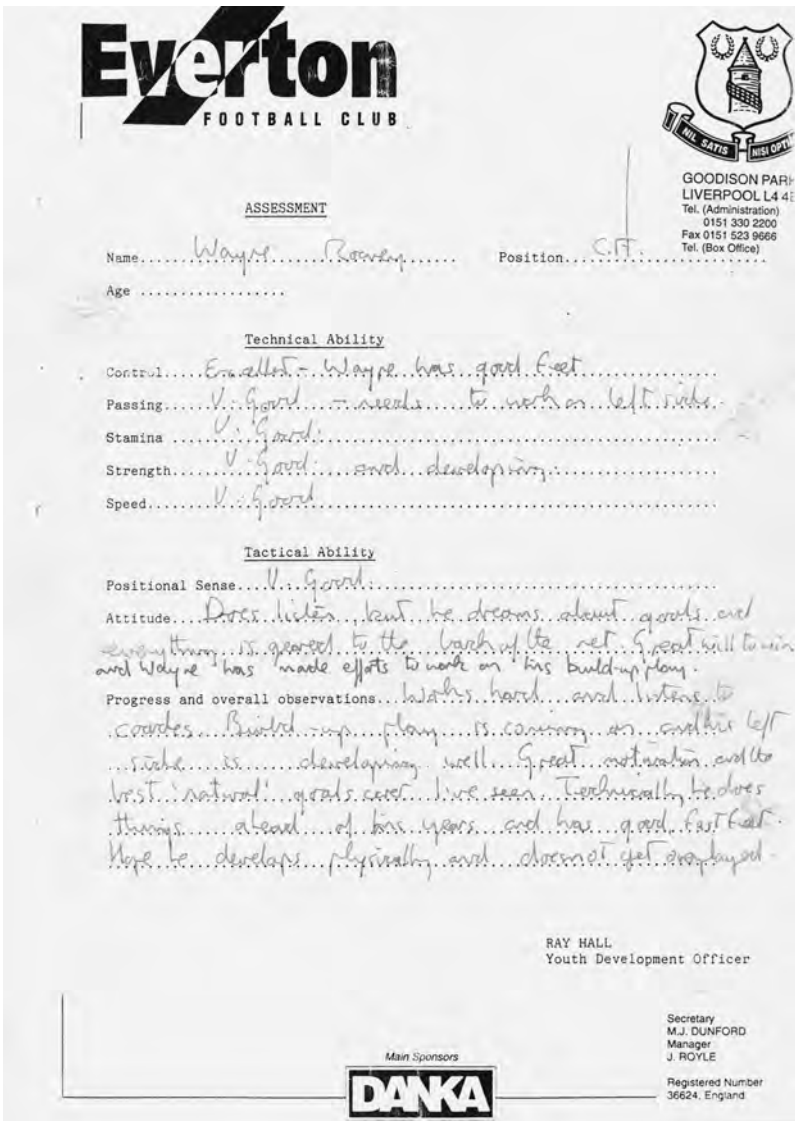 Everton
FOOTBALL CLUB
NIL SATIS NISI OPTI
GOODISON PARK
LIVERPOOL L4 4E
Tel. (Administration)
0151 330 2200
Fax 0151 523 9666
Tel. (Box Office)
ASSESSMENT
Name......Wayne......Rooney...... Position...C.F...............
Age ..................
Technical Ability
Control.....Excellent - Wayne has good feet
Passing.....V. Good - needs to work on left side.
Stamina .....V. Good.
Strength.....V. Good. and developing.
Speed.......V. Good
Tactical Ability
Positional Sense...V. Good.
Attitude...Does listen, but he dreams about goals and
everything is geared to the back of the net. Great will to win
and Wayne has made efforts to work on his build-up play.
Progress and overall observations...Works hard and listens to
coaches. Build-up play is coming on and his left
side is developing well. Great motivation and the
best 'natural' goalscorer I've seen. Technically he does
things ahead of his years and has good fast feet.
Hope he develops physically and does not get overplayed.
RAY HALL
Youth Development Officer
Secretary
M.J. DUNFORD
Manager
J. ROYLE
Main Sponsors
DANKA
Registered Number
36624, England